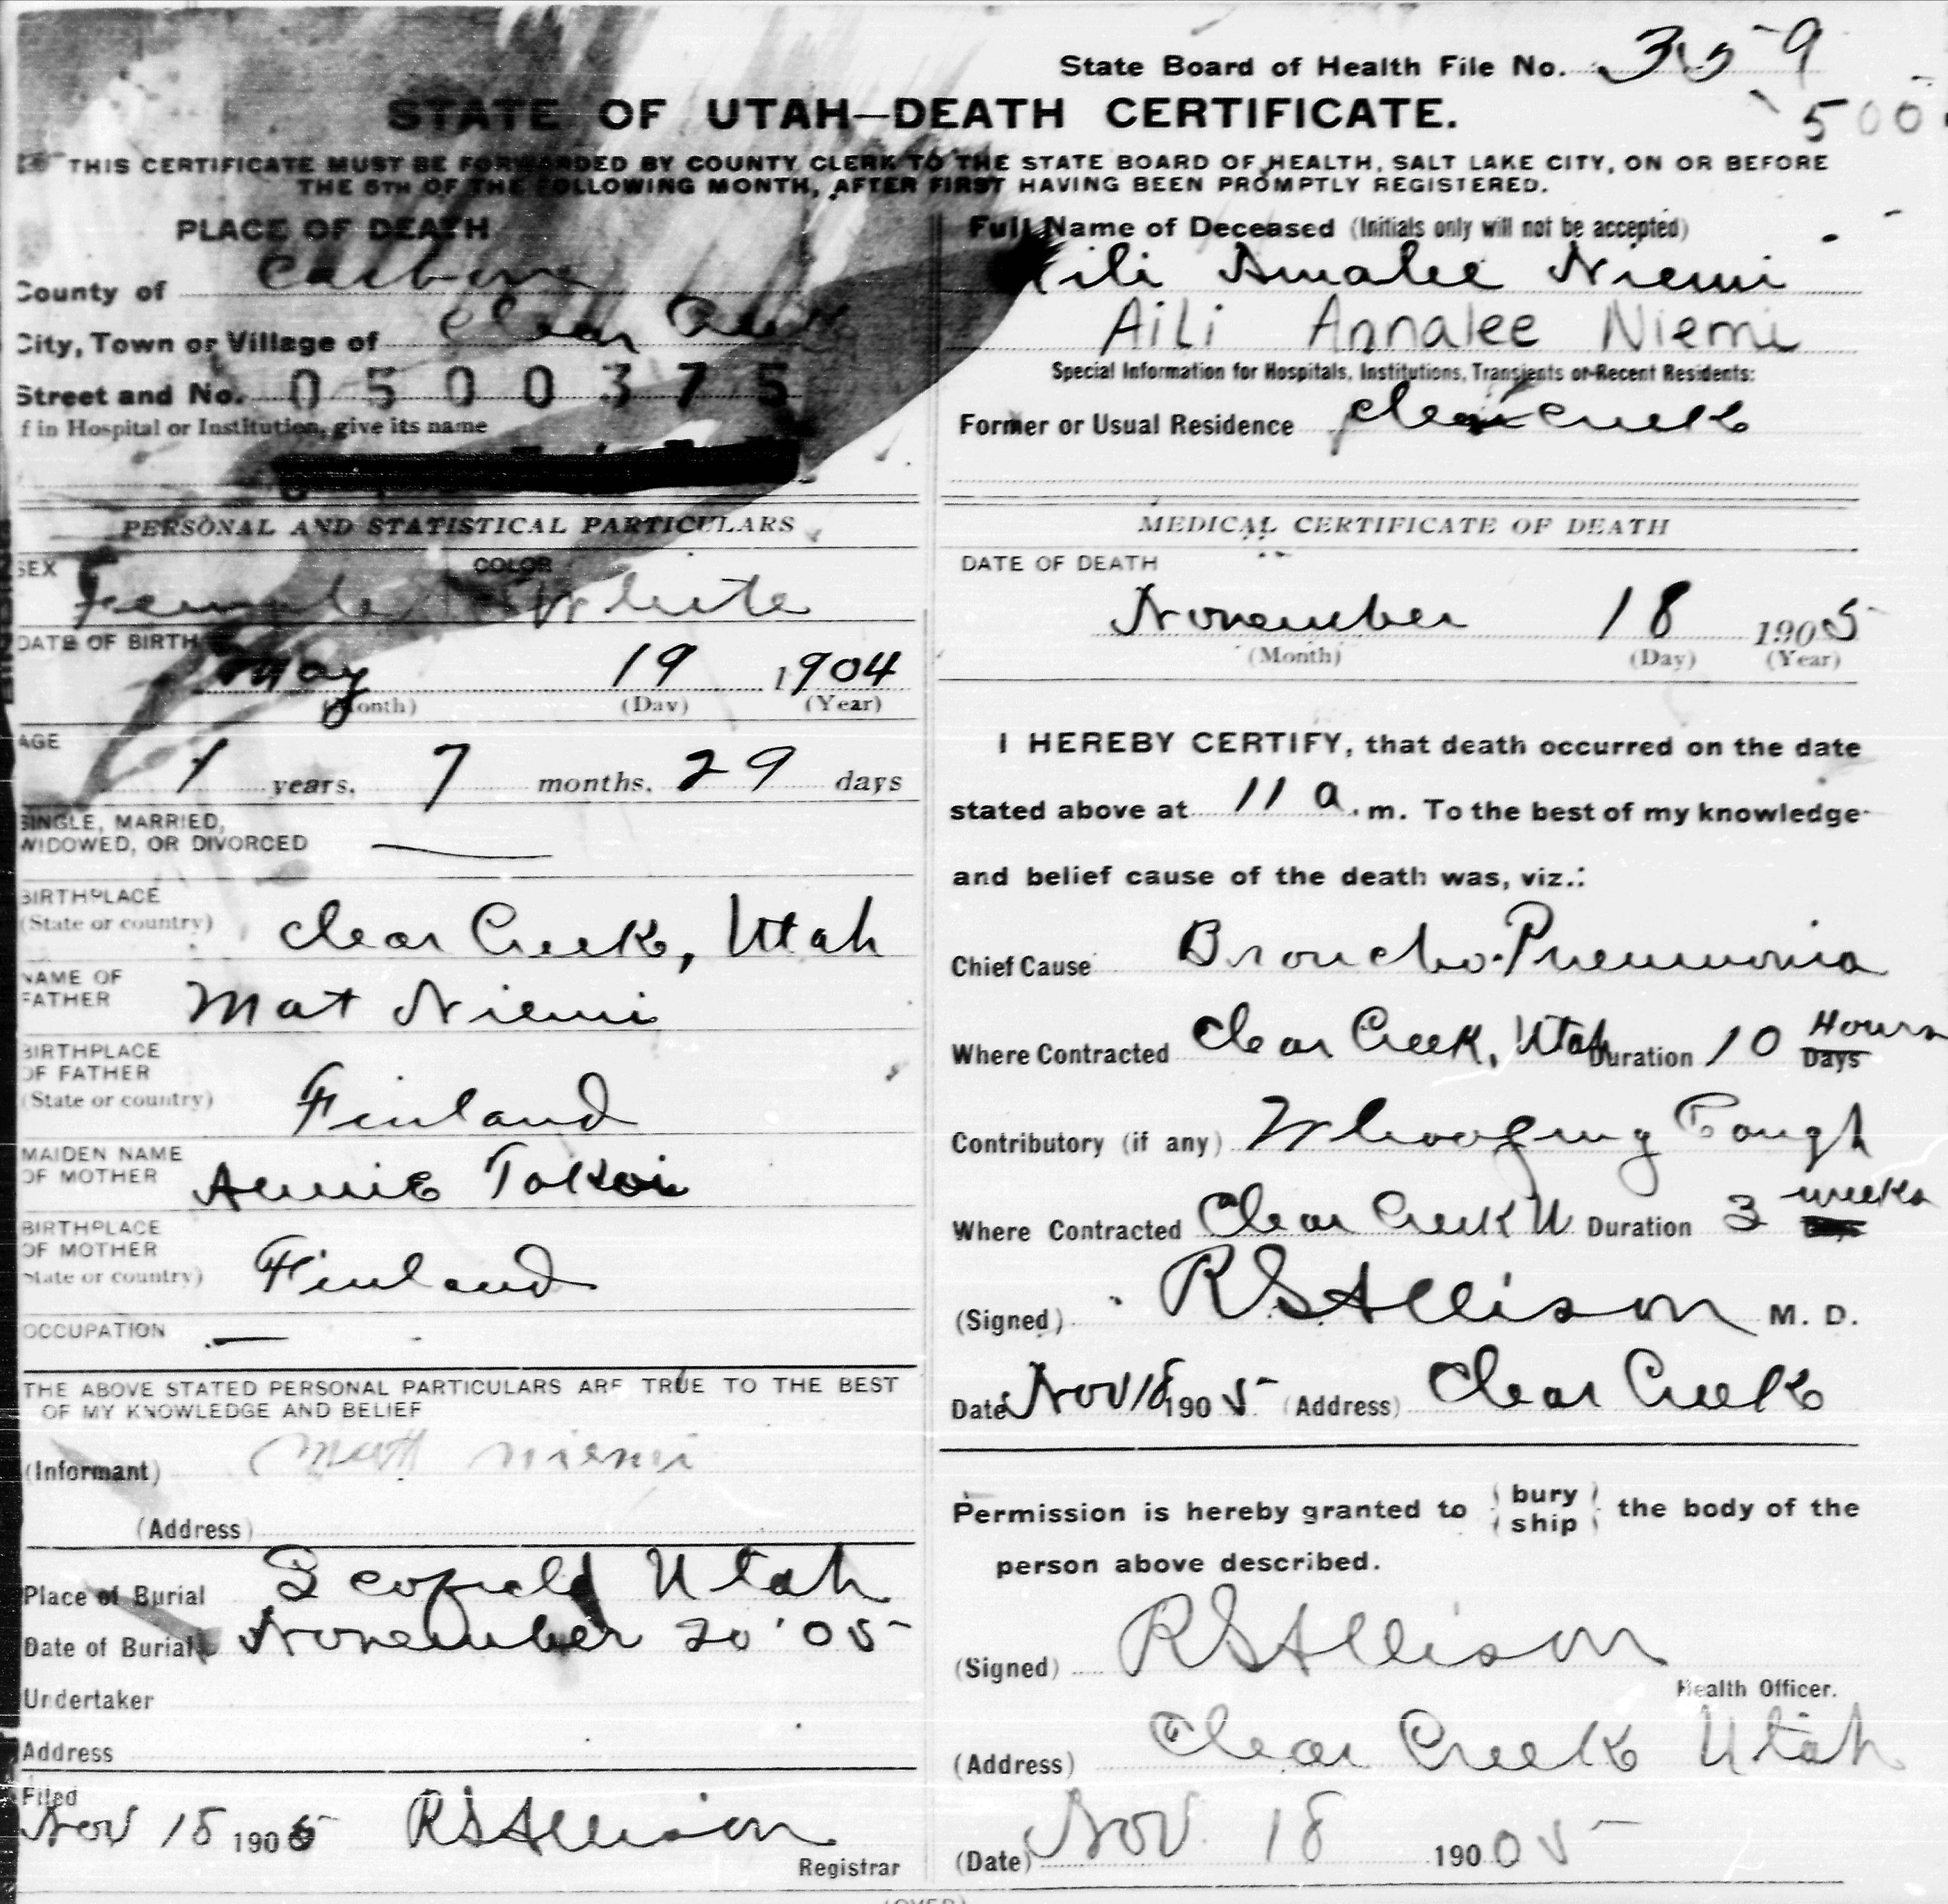 State Board of Health File No. 359
STATE OF UTAH—DEATH CERTIFICATE.
500
THIS CERTIFICATE MUST BE FORWARDED BY COUNTY CLERK TO THE STATE BOARD OF HEALTH, SALT LAKE CITY, ON OR BEFORE
THE 5TH OF THE FOLLOWING MONTH, AFTER FIRST HAVING BEEN PROMPTLY REGISTERED.
PLACE OF DEATH
County of Carbon
City, Town or Village of Clear Creek
Street and No. 0500375
f in Hospital or Institution, give its name
PERSONAL AND STATISTICAL PARTICULARS
SEX Female COLOR White
DATE OF BIRTH
May 19 1904
(Month) (Day) (Year)
AGE
1 years, 7 months, 29 days
SINGLE, MARRIED,
WIDOWED, OR DIVORCED —
BIRTHPLACE
(State or country) Clear Creek, Utah
NAME OF
FATHER Mat Niemi
BIRTHPLACE
OF FATHER
(State or country) Finland
MAIDEN NAME
OF MOTHER Annie Tokoi
BIRTHPLACE
OF MOTHER
State or country) Finland
OCCUPATION —
THE ABOVE STATED PERSONAL PARTICULARS ARE TRUE TO THE BEST
OF MY KNOWLEDGE AND BELIEF
(Informant) Matt Niemi
(Address)
Place of Burial Scofield Utah
Date of Burial November 20 '05
Undertaker
Address
Filed
Nov 18 1905 RSAllison
Registrar
Full Name of Deceased (Initials only will not be accepted)
Aili Amalee Niemi
Aili Annalee Niemi
Special Information for Hospitals, Institutions, Transients or Recent Residents:
Former or Usual Residence Clear Creek
MEDICAL CERTIFICATE OF DEATH
DATE OF DEATH
November 18 1905
(Month) (Day) (Year)
I HEREBY CERTIFY, that death occurred on the date
stated above at 11 a.m. To the best of my knowledge
and belief cause of the death was, viz.:
Chief Cause Broncho-Pneumonia
Where Contracted Clear Creek, Utah Duration 10 Hours Days
Contributory (if any) Whooping Cough
Where Contracted Clear Creek U Duration 3 weeks
(Signed) RSAllison M. D.
Date Nov 18 1905 (Address) Clear Creek
Permission is hereby granted to (bury ship) the body of the
person above described.
(Signed) RSAllison
Health Officer.
(Address) Clear Creek Utah
(Date) Nov. 18 19005
(OVER)